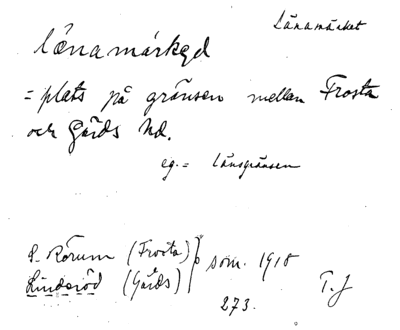 Länamärket
länamärkęd
= plats på gränsen mellan Frosta
och Gärds hd.
eg. = Länsgränsen
S. Rörum (Frosta)
Linderöd (Gärds)
som. 1918
273.
T. J